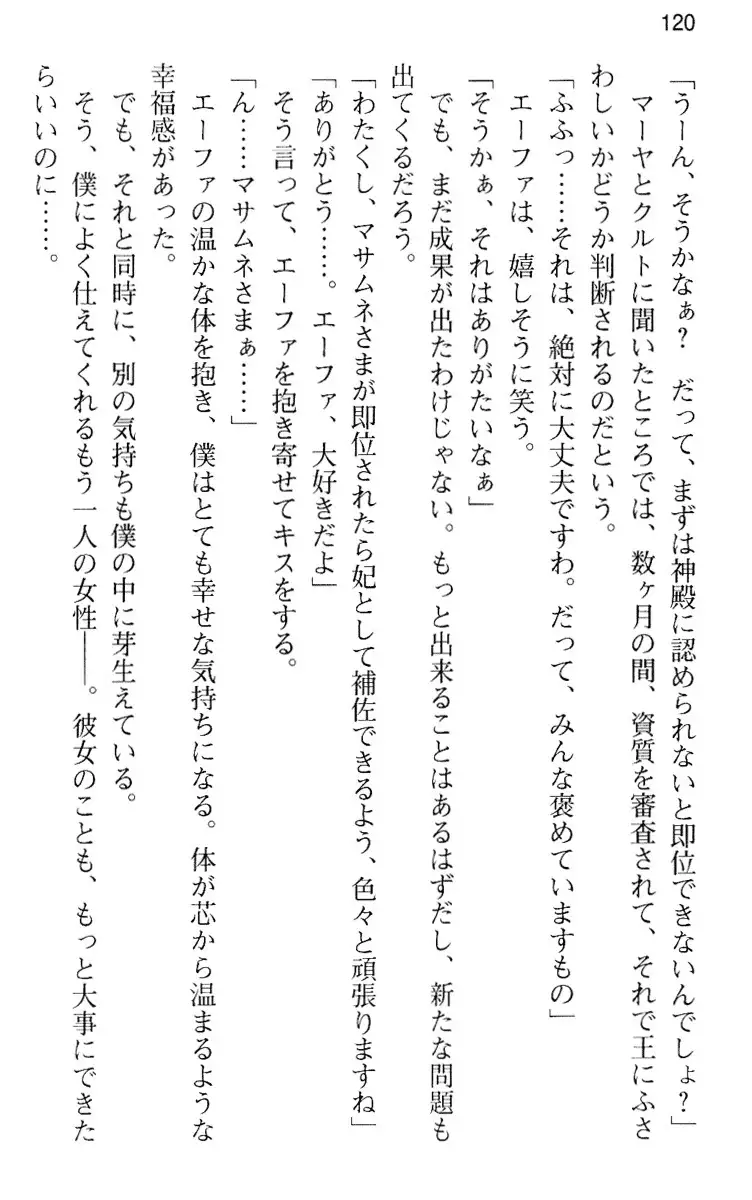 120
「うーん、そうかなぁ?　だって、まずは神殿に認められないと即位できないんでしょ?」
マーヤとクルトに聞いたところでは、数ヶ月の間、資質を審査されて、それで王にふさ
わしいかどうか判断されるのだという。
「ふふっ……それは、絶対に大丈夫ですわ。だって、みんな褒めていますもの」
エーファは、嬉しそうに笑う。
「そうかぁ、それはありがたいなぁ」
でも、まだ成果が出たわけじゃない。もっと出来ることはあるはずだし、新たな問題も
出てくるだろう。
「わたくし、マサムネさまが即位されたら妃として補佐できるよう、色々と頑張りますね」
「ありがとう……。エーファ、大好きだよ」
そう言って、エーファを抱き寄せてキスをする。
「ん……マサムネさまぁ……」
エーファの温かな体を抱き、僕はとても幸せな気持ちになる。体が芯から温まるような
幸福感があった。
でも、それと同時に、別の気持ちも僕の中に芽生えている。
そう、僕によく仕えてくれるもう一人の女性――。彼女のことも、もっと大事にできた
らいいのに……。